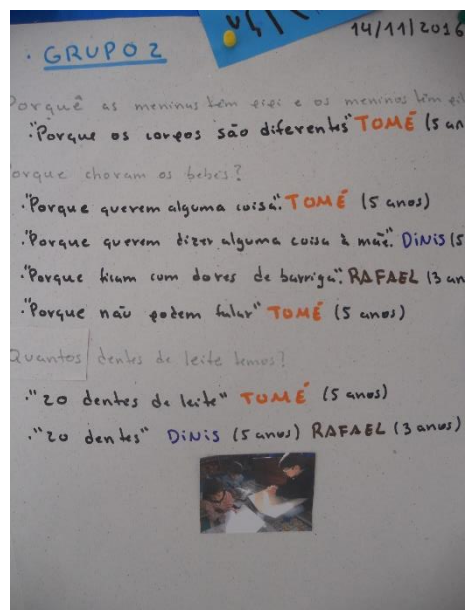 14/11/2016
· GRUPO 2
Porquê as meninas têm pipi e os meninos têm
."Porque os corpos são diferentes" TOMÉ (5 an
orque choram os bebés?
."Porque querem alguma coisa". TOMÉ (5 anos)
."Porque querem dizer alguma coisa à mãe". DINIS (5
."Porque ficam com dores de barriga". RAFAEL (3 an
."Porque não podem falar" TOMÉ (5 anos)
Quantos dentes de leite temos?
."20 dentes de leite" TOMÉ (5 anos)
."20 dentes" DINIS (5 anos) RAFAEL (3 anos)